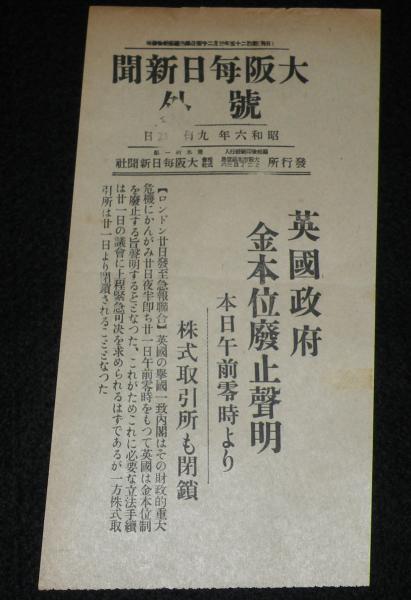 大阪每日新聞
號外
昭和六年九月 日
發行所 大阪每日新聞社
英國政府
金本位廢止聲明
本日午前零時より
株式取引所も閉鎖
【ロンドン廿日發至急報聯合】英國の擧國一致内閣はその財政的重大
危機にかんがみ廿日夜半即ち廿一日午前零時をもつて英國は金本位制
を廢止する旨聲明することゝなつた、これがためこれに必要な立法手續
は廿一日の議會に上程緊急可决を求められるはずであるが一方株式取
引所は廿一日より閉鎖されることゝなつた